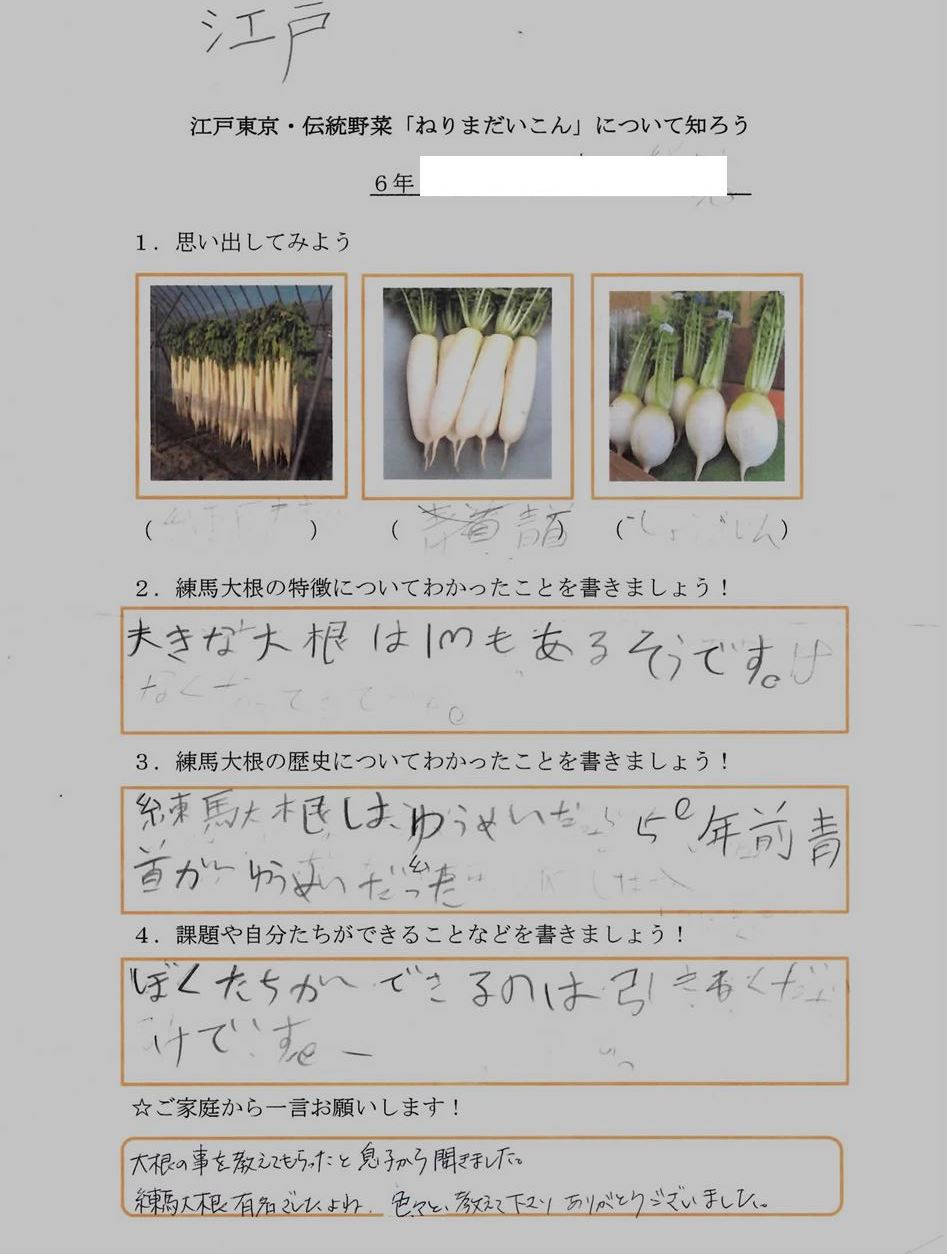 江戸
江戸東京・伝統野菜「ねりまだいこん」について知ろう
6年
1．思い出してみよう
（　　　）　（青首）　（しょごいん）
2．練馬大根の特徴についてわかったことを書きましょう！
大きな大根は1mもあるそうです。
3．練馬大根の歴史についてわかったことを書きましょう！
練馬大根は、ゆうめいだ 50年前青
首がゆうめいだった
4．課題や自分たちができることなどを書きましょう！
ぼくたちができるのは引きぬくだ
けです。
☆ご家庭から一言お願いします！
大根の事を教えてもらったと息子から聞きました。
練馬大根有名でしたよね。色々と、教えて下さりありがとうございました。